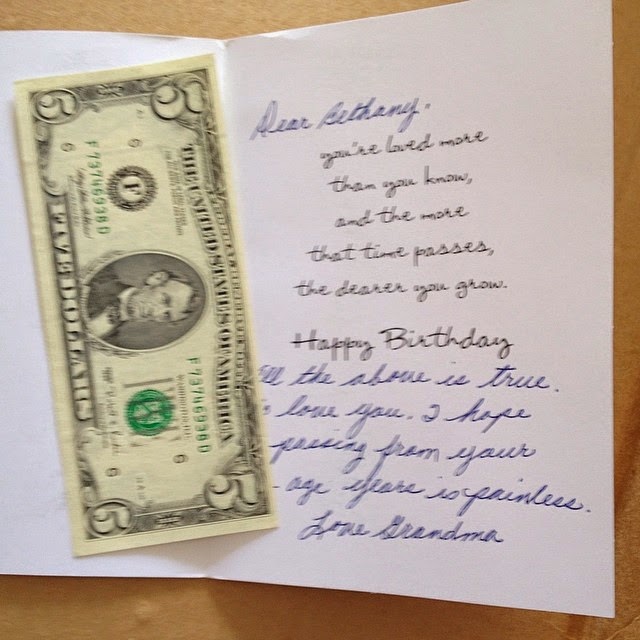 Dear Bethany.
you're loved more
than you know,
and the more
that time passes,
the dearer you grow.
Happy Birthday
All the above is true.
love you. I hope
passing from your
age years is painless.
Love Grandma
5 5
THE UNITED STATES OF AMERICA
F73766938D
F
FIVE DOLLARS
F73766938D
6 6
5 5